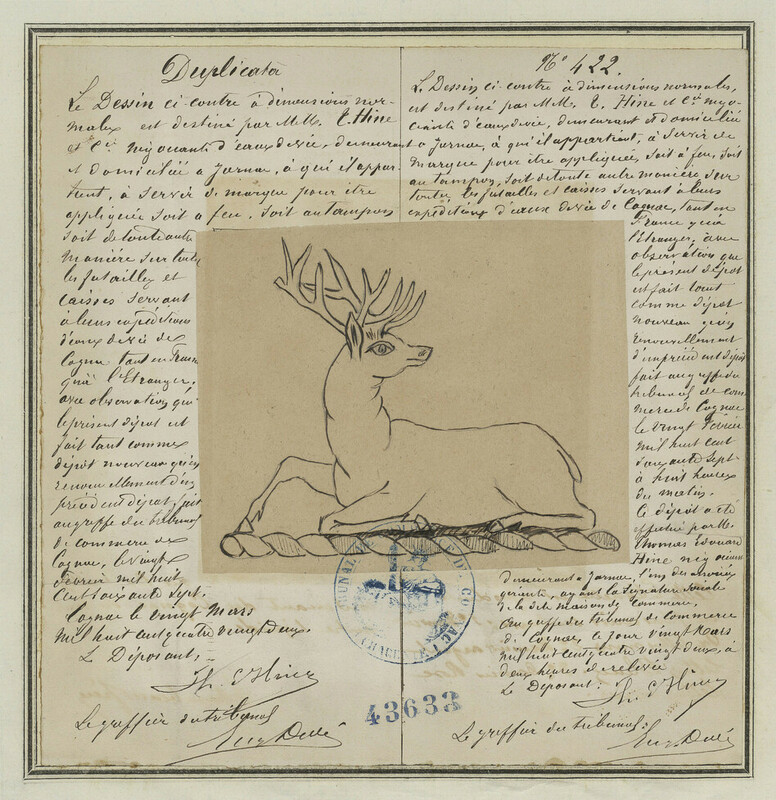 Duplicata
Le Dessin ci-contre à dimensions nor-
males est destiné par MM. T. Hine
et Cie négociants d'eaux de vie, demeurant
et domiciliés à Jarnac, à qui il appar-
tient, à servir de marque pour être
appliquée soit à feu, soit au tampon
soit de toute autre
manière sur toutes
les futailles et
caisses servant
à leurs expéditions
d'eaux de vie de
Cognac tant en France
qu'à l'Etranger,
avec observation que
le présent dépôt est
fait tant comme
dépôt nouveau qu'en
renouvellement d'un
précédent dépôt fait
au greffe du tribunal
de commerce de
Cognac, le vingt
février mil huit
cent soixante sept.
Cognac le vingt Mars
mil huit cent quatre vingt deux.
Le Déposant,
Th. E. Hine
Le greffier du tribunal
No 422.
Le Dessin ci-contre à dimensions normales,
est destiné par MM. T. Hine et Cie négo-
ciants d'eaux de vie, demeurant et domiciliés
à Jarnac, à qui il appartient, à servir de
marque pour être appliquée, soit à feu, soit
au tampon, soit de toute autre manière sur
toutes les futailles et caisses servant à leurs
expéditions d'eaux de vie de Cognac, tant en
France qu'à
l'Etranger, avec
observation que
le présent dépôt
est fait tant
comme dépôt
nouveau qu'en
renouvellement
d'un précédent dépôt
fait au greffe du
tribunal de com-
merce de Cognac
le vingt février
mil huit cent
soixante sept
à huit heures
du matin.
Ce dépôt a été
effectué par M.
Thomas Edouard
Hine négociant
demeurant à Jarnac, l'un des associés
gérants, ayant la signature sociale
de la dite maison de commerce.
Au greffe du tribunal de commerce
de Cognac, le jour vingt Mars
mil huit cent quatre vingt deux, à
deux heures de relevée
Le Déposant:
Th. E. Hine
Le greffier du tribunal:
TRIBUNAL DE COMMERCE DE COGNAC
CHARENTE
43633